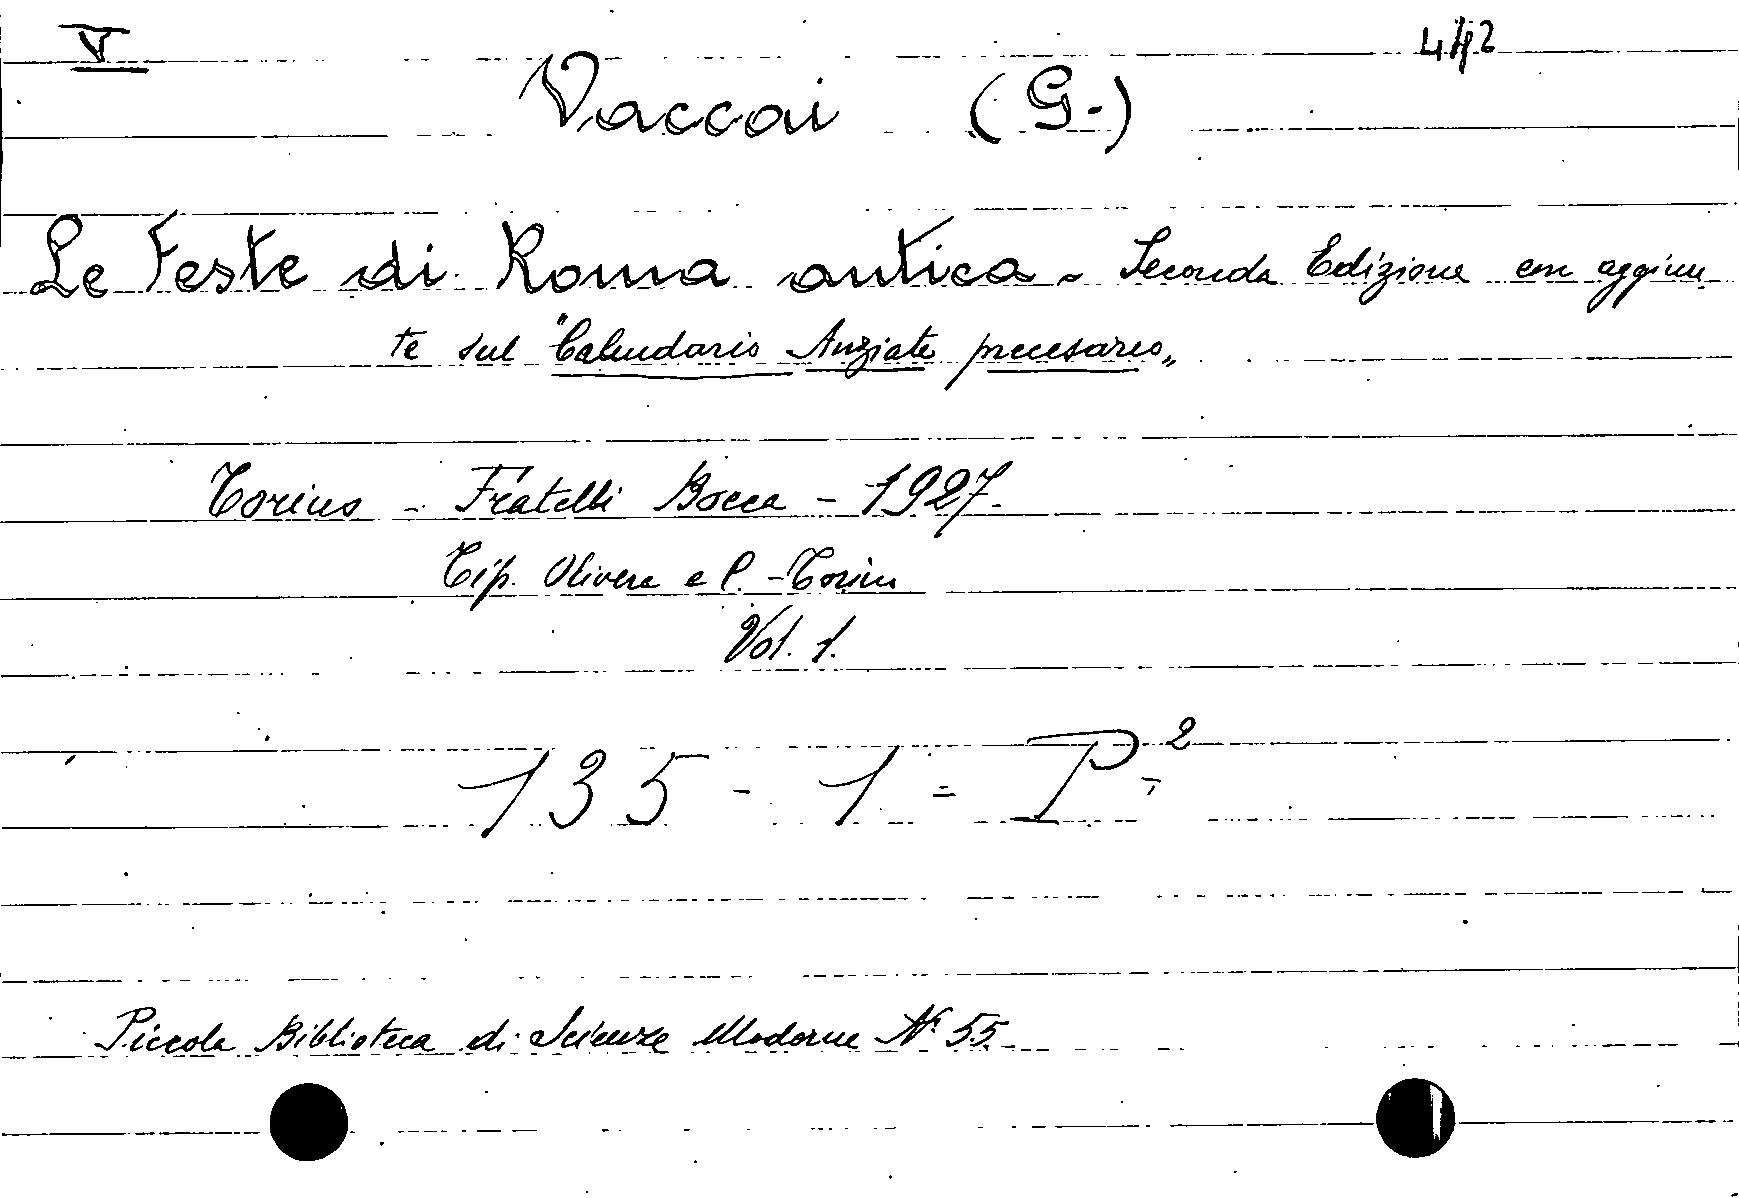 V
Vaccai (G.)
Le Feste di Roma antica - Seconda Edizione con aggiun
te sul "Calendario Anziate precesareo„
Torino - Fratelli Bocca - 1927.
Tip. Olivero e C. - Torino
Vol. 1.
135 - 1 = P.²
Piccola Biblioteca di Scienze Moderne N. 55.